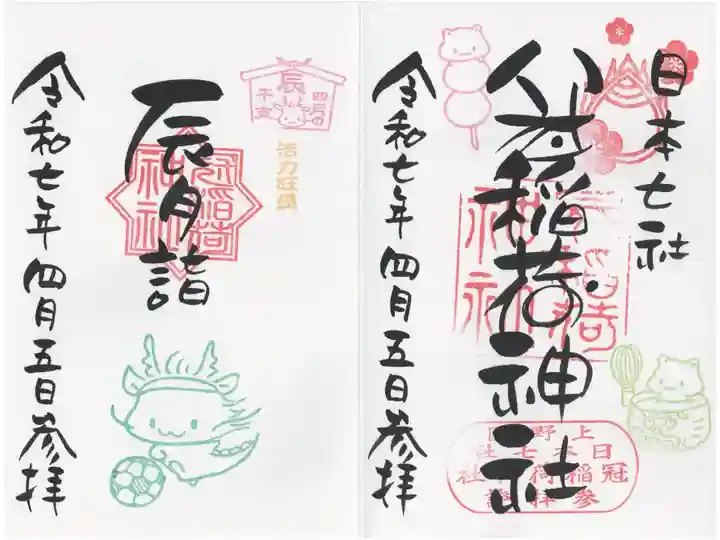 日本七社
冠稲荷神社
上野国
日本七社
冠稲荷神社
参拝證
令和七年四月五日参拝
四月の
辰
干支
活力旺盛
辰月詣
冠稲荷
神社
令和七年四月五日参拝